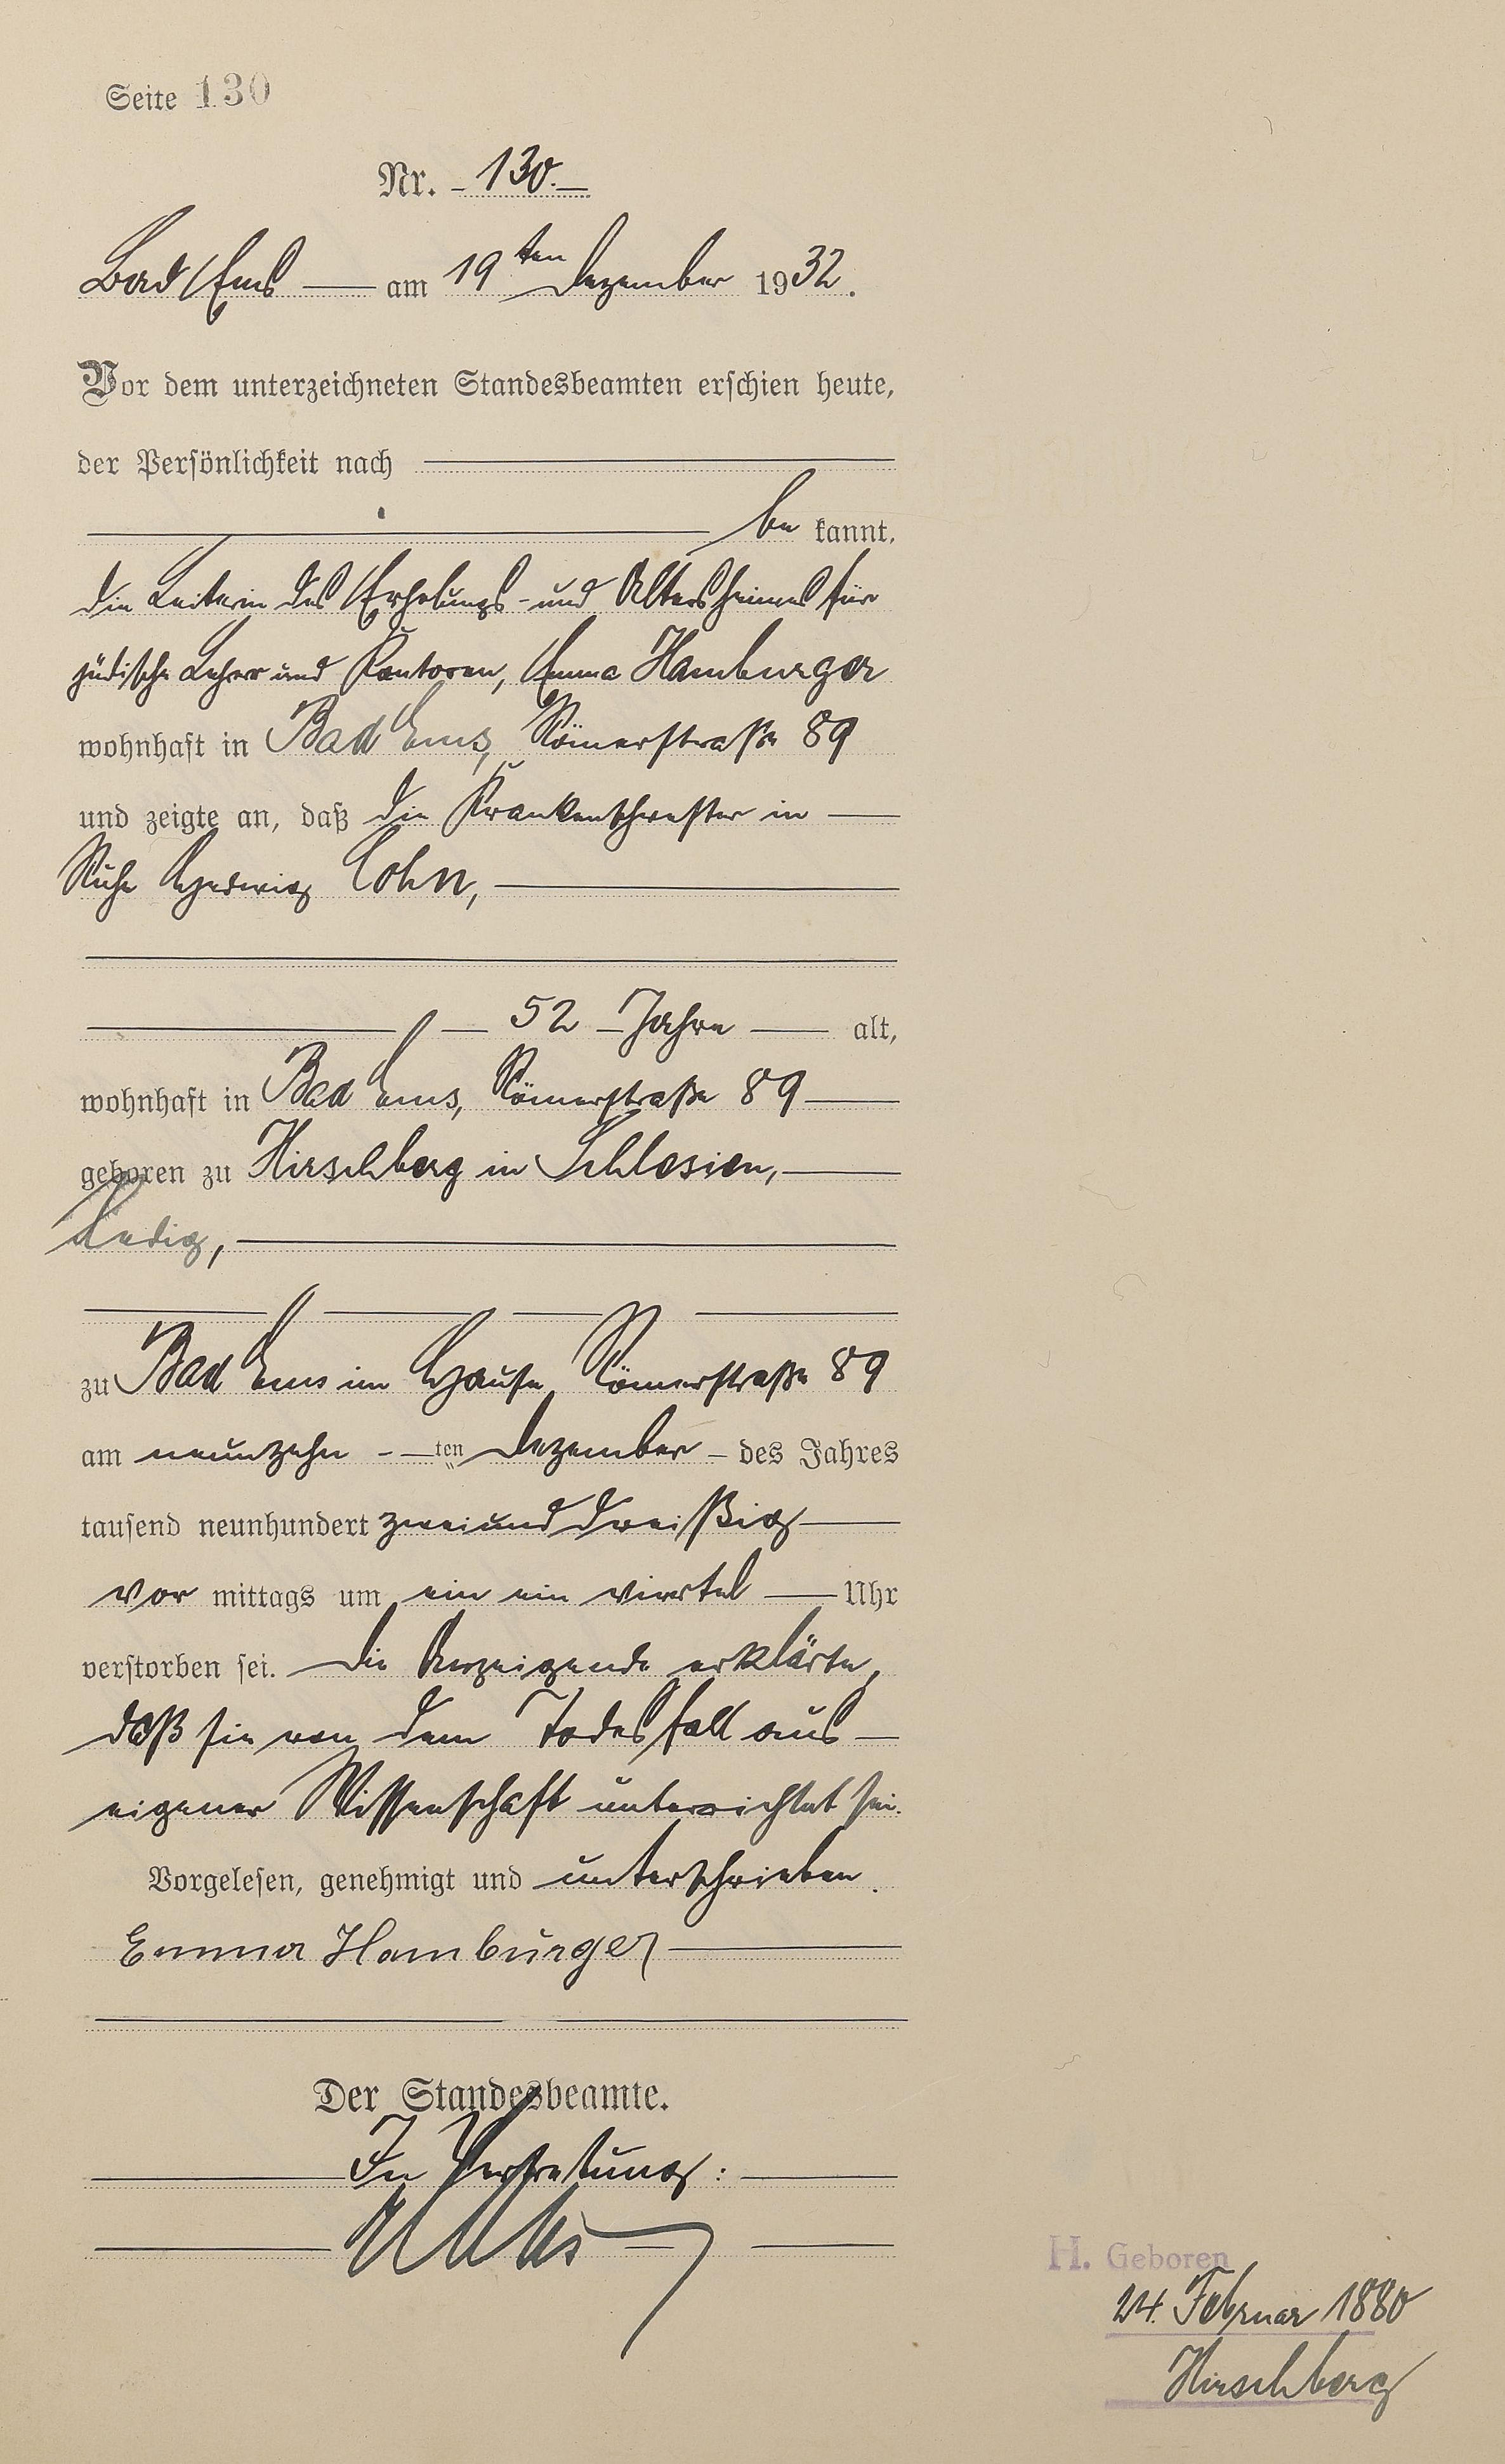 Seite 130
Nr. 130.
Bad Ems am 19ten Dezember 1932.
Vor dem unterzeichneten Standesbeamten erschien heute,
der Persönlichkeit nach
be kannt,
die Leiterin des Erholungs- und Altersheimes für
jüdische Lehrer und Kantoren, Emma Hamburger
wohnhaft in Bad Ems, Römerstraße 89
und zeigte an, daß die Krankenschwester in
Ruhe Hedwig Cohn,
52 Jahre alt,
wohnhaft in Bad Ems, Römerstraße 89
geboren zu Hirschberg in Schlesien,
ledig,
zu Bad Ems im Hause Römerstraße 89
am neunzehn ten Dezember des Jahres
tausend neunhundert zweiunddreißig
vor mittags um ein ein viertel Uhr
verstorben sei. Die Anzeigende erklärte,
daß sie von dem Todesfall aus
eigener Wissenschaft unterrichtet sei.
Vorgelesen, genehmigt und unterschrieben.
Emma Hamburger
Der Standesbeamte.
In Vertretung:
H. Geboren
24. Februar 1880
Hirschberg